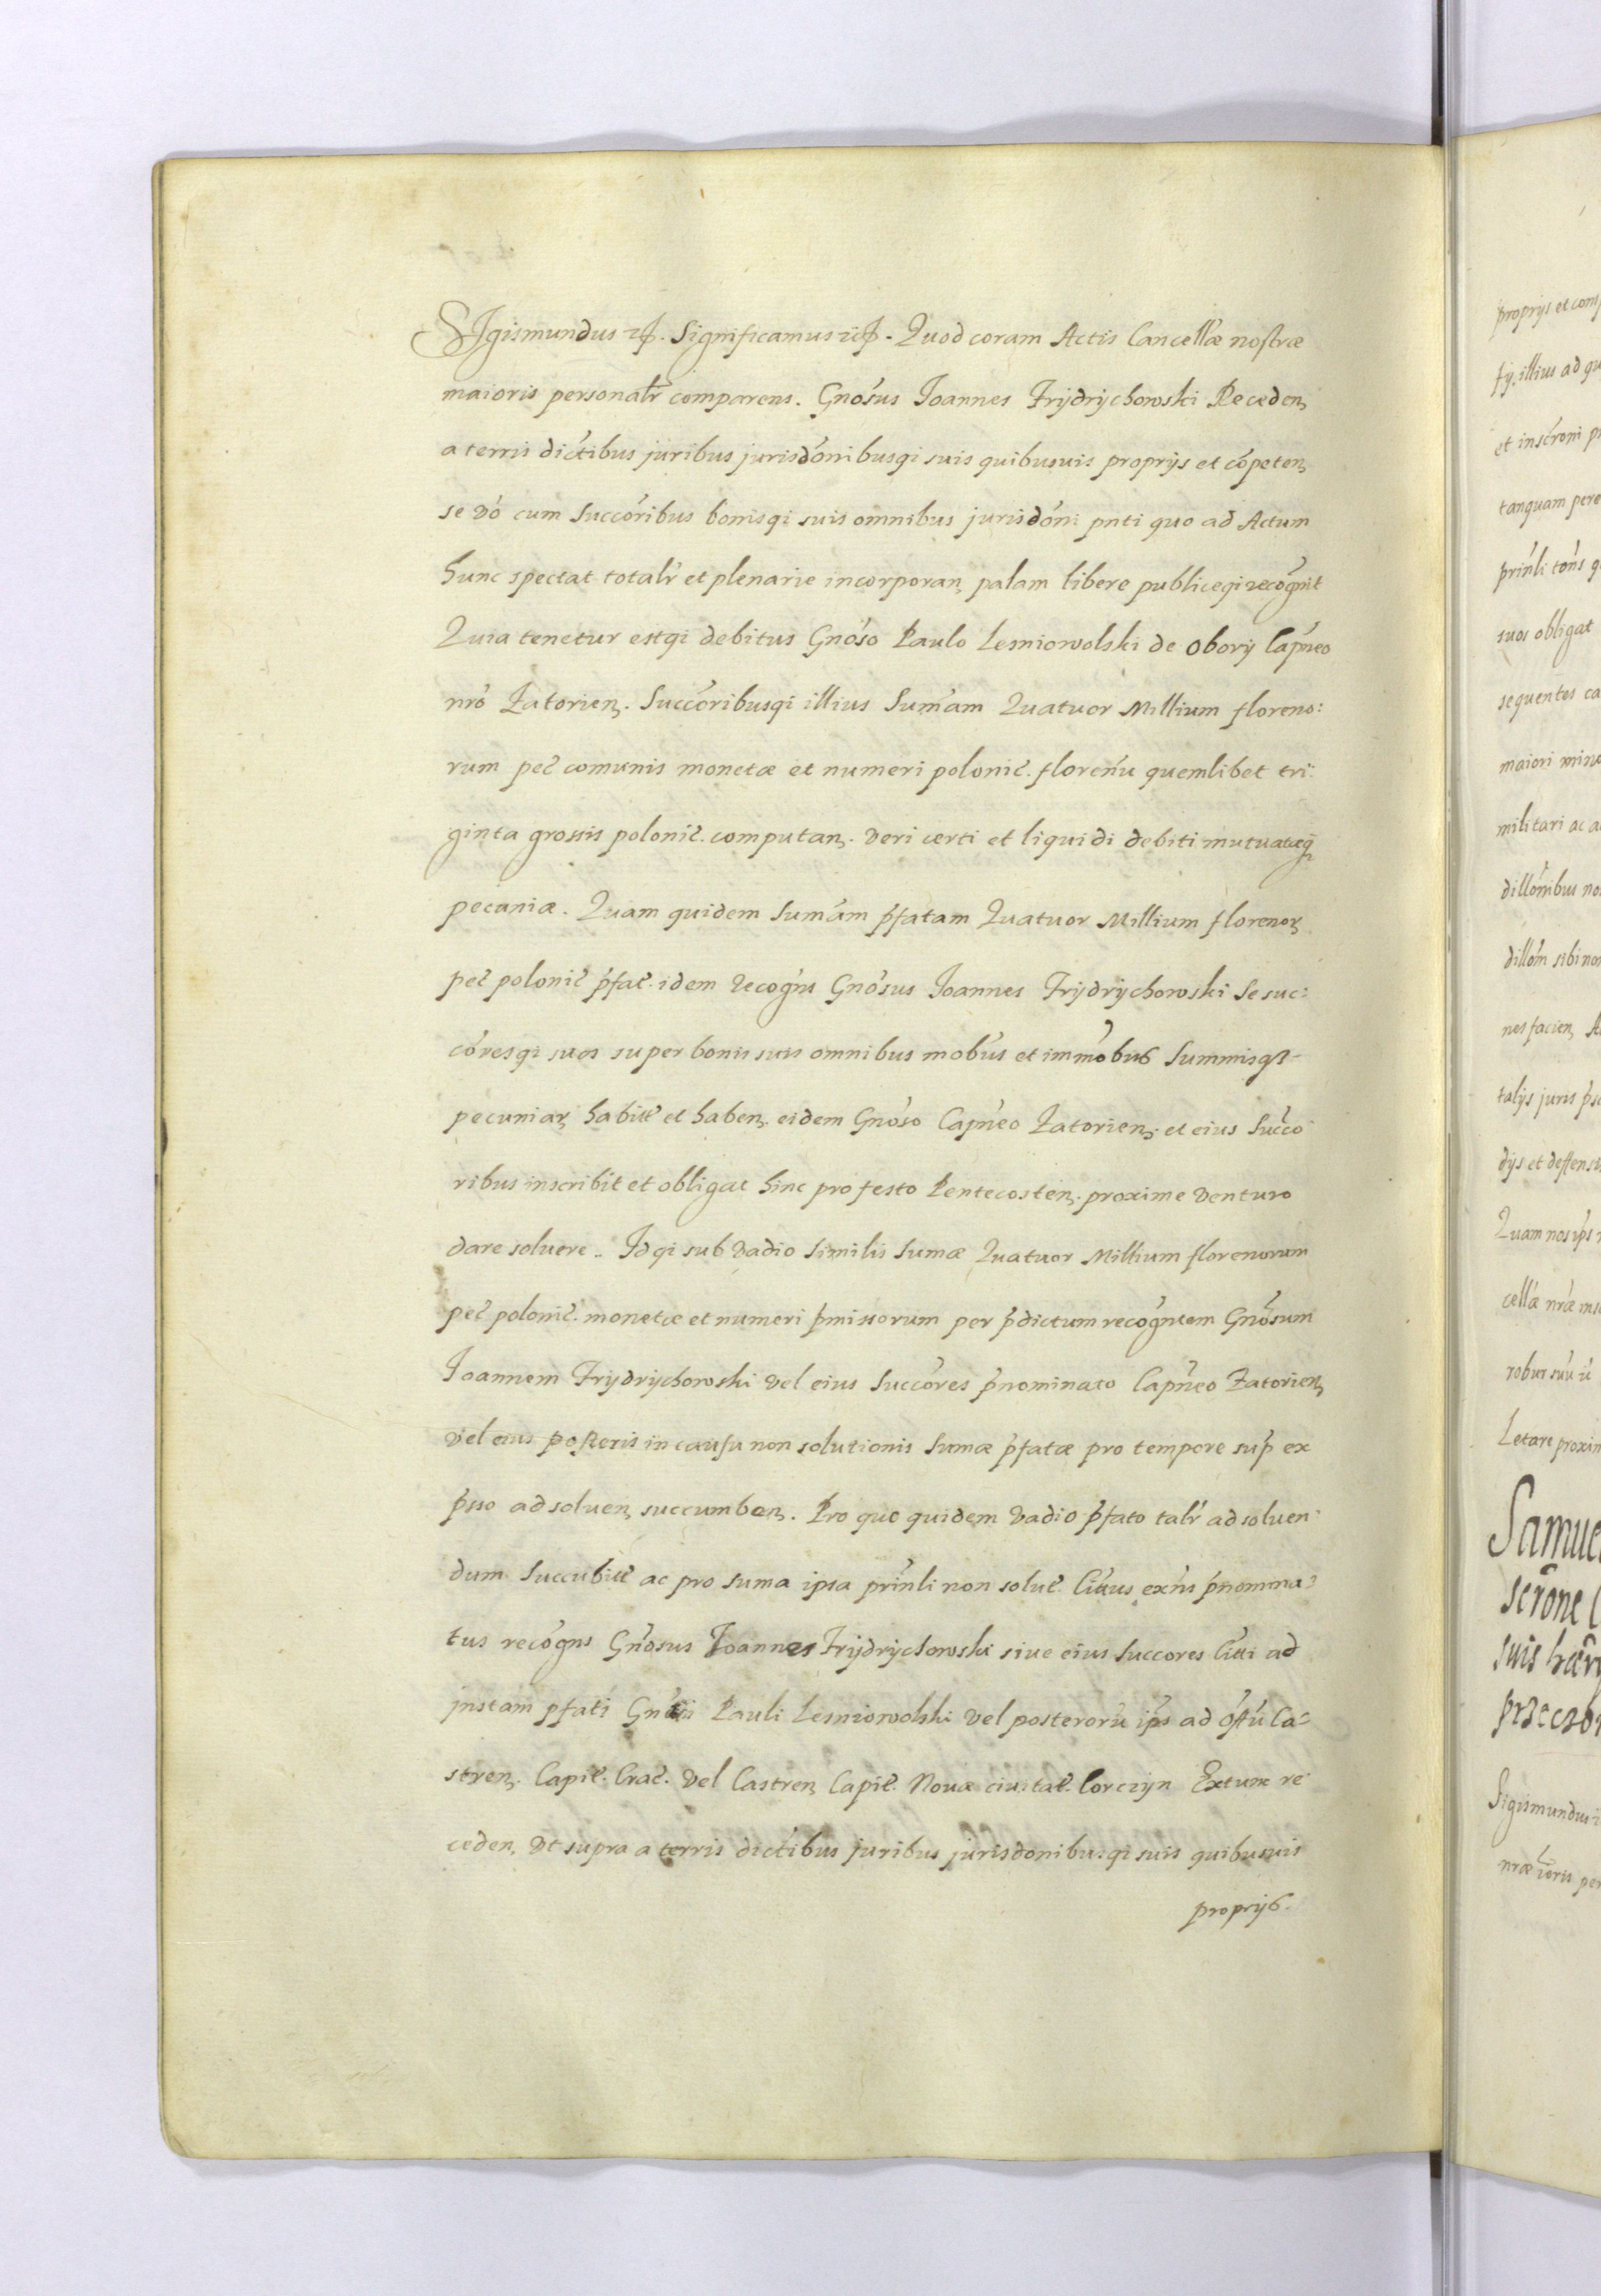 SIgismundus etc. Significamus etc. Quod coram Actis Cancellæ nostræ
maioris personalr comparens. Gnosus Joannes Frijdrijchowski Receden,
a terris dictibus juribus jurisdonibusqi suis quibusuis proprijs et competen,
se vo cum Succoribus bonisqi suis omnibus jurisdoni pnti quo ad Actum
hunc spectat totalr et plenarie incorporan, palam libere publiceqi recognit
Quia tenetur estqi debitus Gnoso Paulo Lesniowolski de Obory Capneo
nro Zatorien. Succoribusqi illius Sumam Quatuor Millium floreno:
rum pec comunis monetæ et numeri polonic. florenu quemlibet tri:
ginta grossis polonic. computan. veri certi et liquidi debiti mutuatæq
pecuniæ. Quam quidem Sumam pfatam Quatuor Millium florenor,
pec polonic pfat. idem recogns Gnosus Joannes Frijdrijchowski Se suc:
coresqi suos super bonis suis omnibus mobus et immobus Summisqi
pecuniar, habitt et haben. eidem Gnoso Capneo Zatorien. et eius Succo
ribus inscribit et obligat hinc pro festo Pentecosten. proxime venturo
dare soluere. Idqi sub vadio Similis Sumæ Quatuor Millium florenorum
pec polonic. monetæ et numeri pmissorum per pdictum recogntem Gnosum
Joannem Frijdrijchowski vel eius Succores pnominato Capneo Zatorien,
vel eius posteris in causu non solutionis Sumæ pfatæ pro tempore sup ex
psso ad soluen, succumben. Pro quo quidem vadio pfato talr ad soluen:
dum Succubitt ac pro Suma ipsa prinli non solut. Cittus exns pnomina:
tus recogns Gnosus Joannes Frijdrijchowski siue eius Succores Citti ad
jnstam pfati Gnosi Pauli Lesniowolski vel posteroru ips ad offu Ca:
stren. Capit. Crac. vel Castren, Capit. Nouæ ciuitat. Corczijn Extunc re
ceden, Vt supra a terris dictibus juribus jurisdonibusqi suis quibusuis
proprijs.
proprijs et
illius ad
et inscroni
tanquam
prinli tons
suos obligat
sequentes
maiori
militari ac
dillonibus
dillom sibi
nes facien,
talijs juris
dijs et
Quam nos
cellæ nræ
robur suu
Letare
suis
Sigismundus
nræ